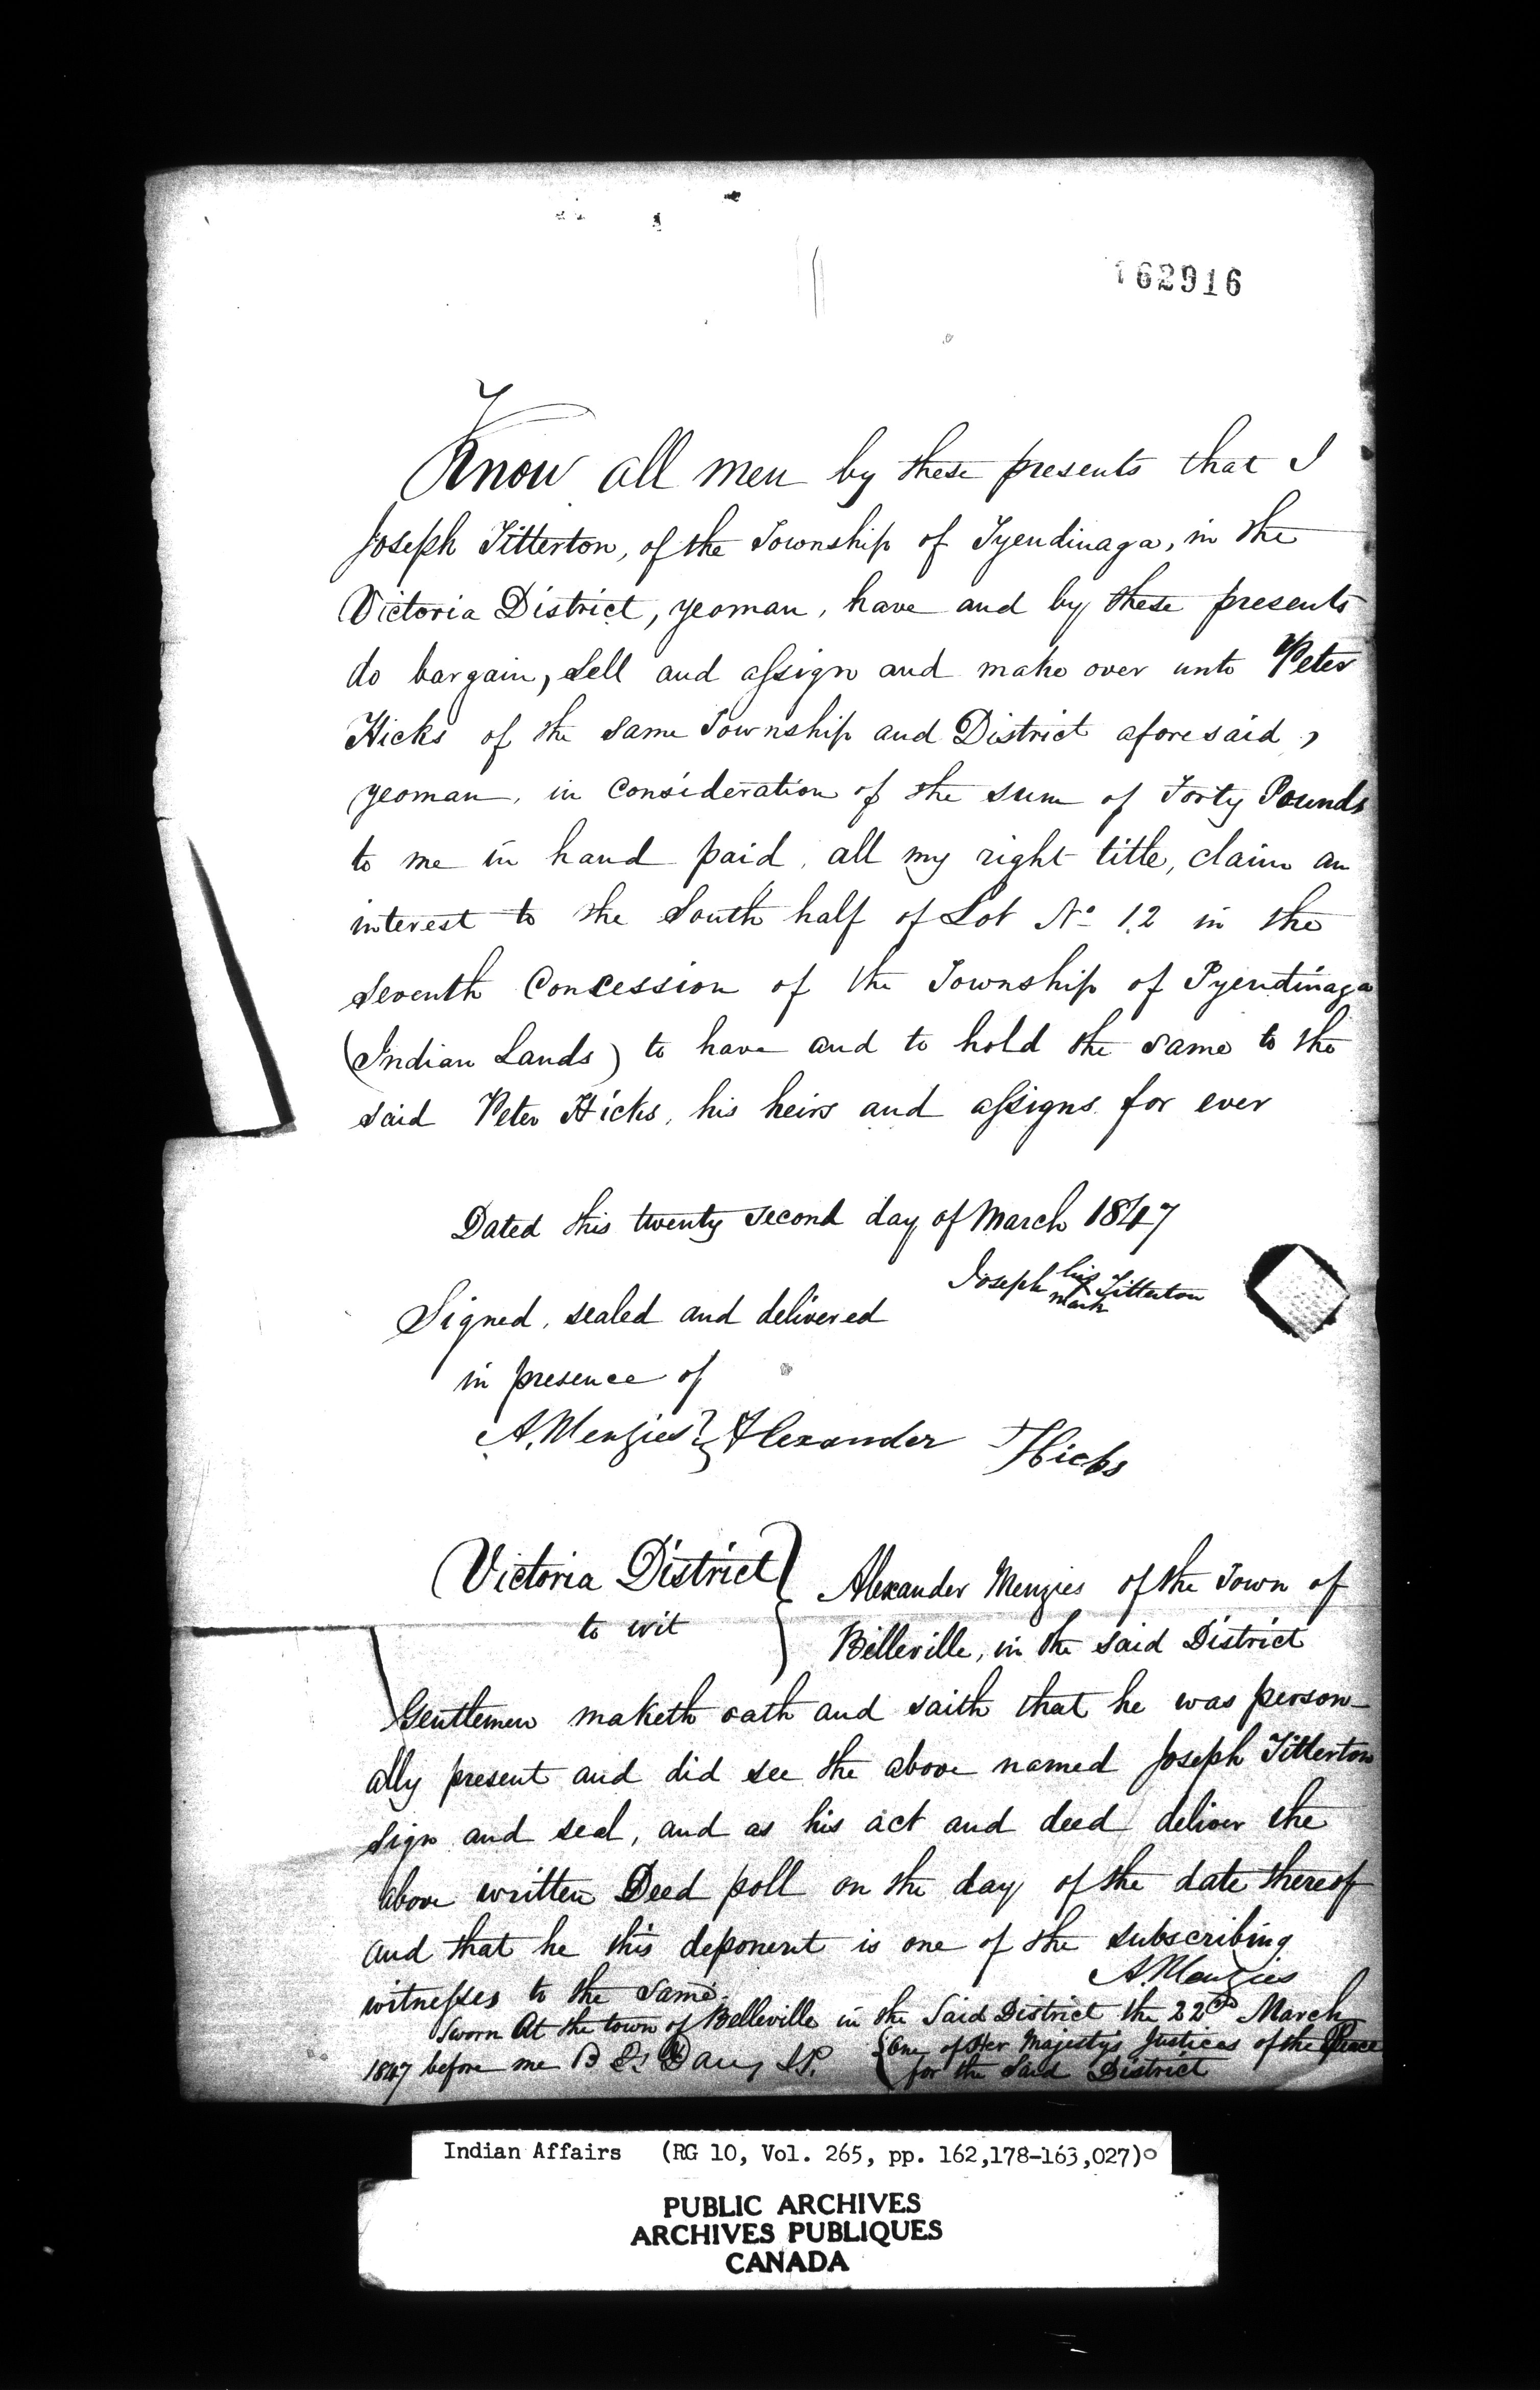 162916
Know all men by these presents that I
Joseph Titterton, of the Township of Tyendinaga, in the
Victoria District, yeoman, have and by these presents
do bargain, sell and assign and make over unto Peter
Hicks of the same Township and District aforesaid,
yeoman, in consideration of the sum of Forty Pounds
to me in hand paid, all my right title, claim an
interest to the South half of Lot No 12 in the
seventh Concession of the Township of Tyendinaga
(Indian Lands) to have and to hold the same to the
said Peter Hicks, his heirs and assigns for ever
Dated this twenty second day of March 1847
Joseph his X mark Titterton
Signed, sealed and delivered
in presence of
A. Menzies } Alexander Hicks
Victoria District } Alexander Menzies of the Town of
to wit } Belleville, in the said District
Gentlemen maketh oath and saith that he was person-
ally present and did see the above named Joseph Titterton
sign and seal, and as his act and deed deliver the
above written Deed poll on the day of the date thereof
and that he this deponent is one of the subscribing
witnesses to the same.
A. Menzies
Sworn At the town of Belleville in the Said District the 22nd March
1847 before me B Davy J.P. { One of Her Majesty's Justices of the Peace
for the Said District
Indian Affairs (RG 10, Vol. 265, pp. 162,178-163,027)
PUBLIC ARCHIVES
ARCHIVES PUBLIQUES
CANADA